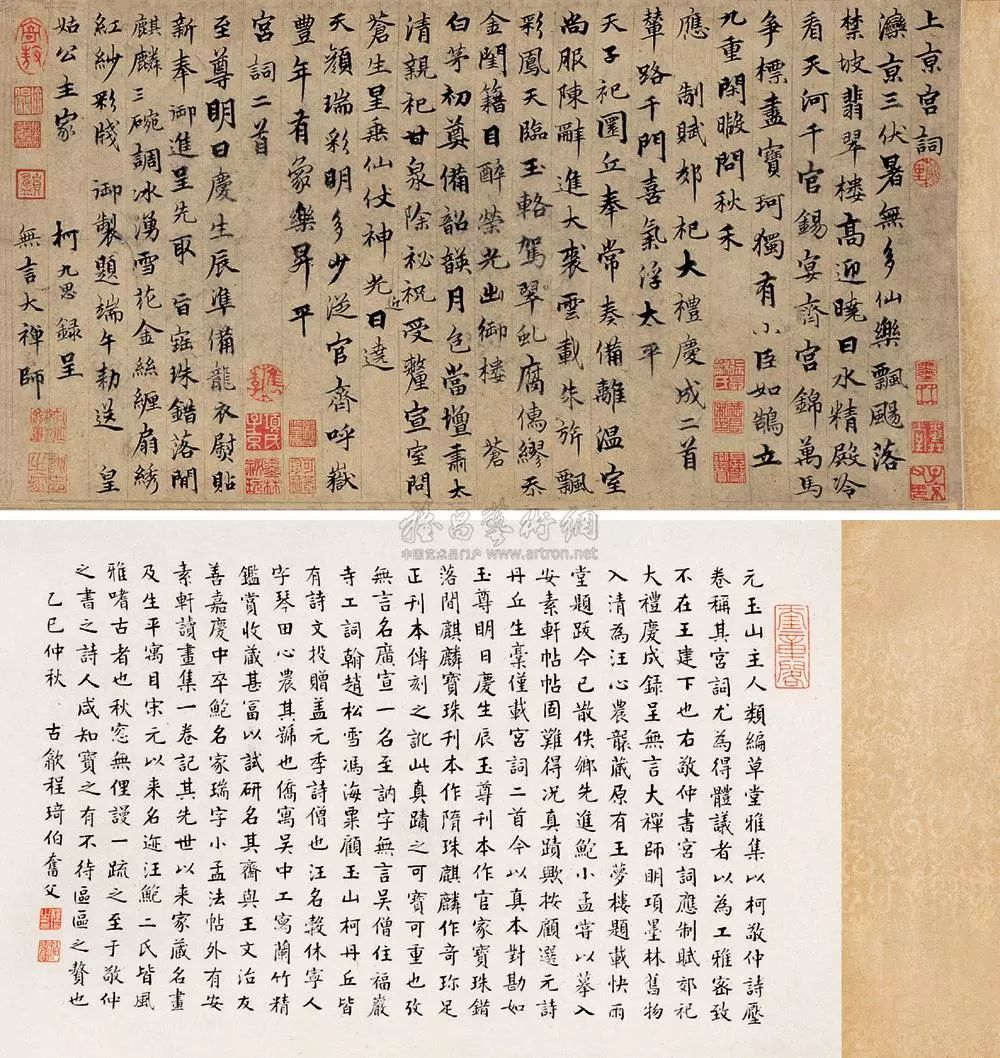 上京宮詞
灤京三伏暑無多仙樂飄颺落
禁坡翡翠樓高迎曉日水精殿冷
看天河千官錫宴齊宮錦萬馬
爭標盡寶珂獨有小臣如鵠立
九重閑暇問秋禾
應 制賦郊祀大禮慶成二首
輦路千門喜氣浮太平
天子祀圜丘奉常奏備離溫室
尚服陳辭進大裘雲載朱旂飄
彩鳳天臨玉輅駕翠虬腐儒繆忝
金閨籍目醉榮光出御樓 蒼
白茅初奠備韶韺月色當壇肅太
清親祀甘泉除祕祝受釐宣室問
蒼生呈垂仙仗神光近日遶
天顏瑞彩明多少從官齊呼嶽
豐年有象樂昇平
宮詞二首
至尊明日慶生辰準備龍衣熨貼
新奉御進呈先取旨寶珠錯落間
麒麟三碗調冰湧雪花金絲纏扇綉
紅紗彩牋 御製題端午勅送 皇
姑公主家
柯九思錄呈
無言大禪師
元玉山主人類編草堂雅集以柯敬仲詩壓
卷稱其宮詞尤為得體議者以為工雅密致
不在王建下也右敬仲書宮詞應制賦郊祀
大禮慶成錄呈無言大禪師明項墨林舊物
入清為汪心農龢藏原有王夢樓題載快雨
堂題跋今已散佚鄉先進鮑小孟嘗以摹入
安素軒帖帖固難得況真蹟歟按顧選元詩
丹丘生稾僅載宮詞二首今以真本對勘如
玉尊明日慶生辰玉尊刊本作官家寶珠錯
落間麒麟寶珠刊本作隋珠麒麟作奇珎足
正刊本傳刻之訛此真蹟之可寶可重也攷
無言名廣宣一名至訥字無言吳僧住福嚴
寺工詞翰趙松雪馮海粟顧玉山柯丹丘皆
有詩文投贈蓋元季詩僧也汪名轂休寧人
字琴田心農其號也僑寓吳中工寫蘭竹精
鑑賞收藏甚富以試研名其齋與王文治友
善嘉慶中卒鮑名家瑞字小孟法帖外有安
素軒讀畫集一卷記其先世以來家藏名畫
及生平寓目宋元以來名迹汪鮑二氏皆風
雅嗜古者也秋窓無俚謾一疏之至于敬仲
之書之詩人咸知寶之有不待區區之贅也
乙巳仲秋 古歙程琦伯奮父
奎章閣
雅昌藝術網
中国艺术品门户 www.artron.net